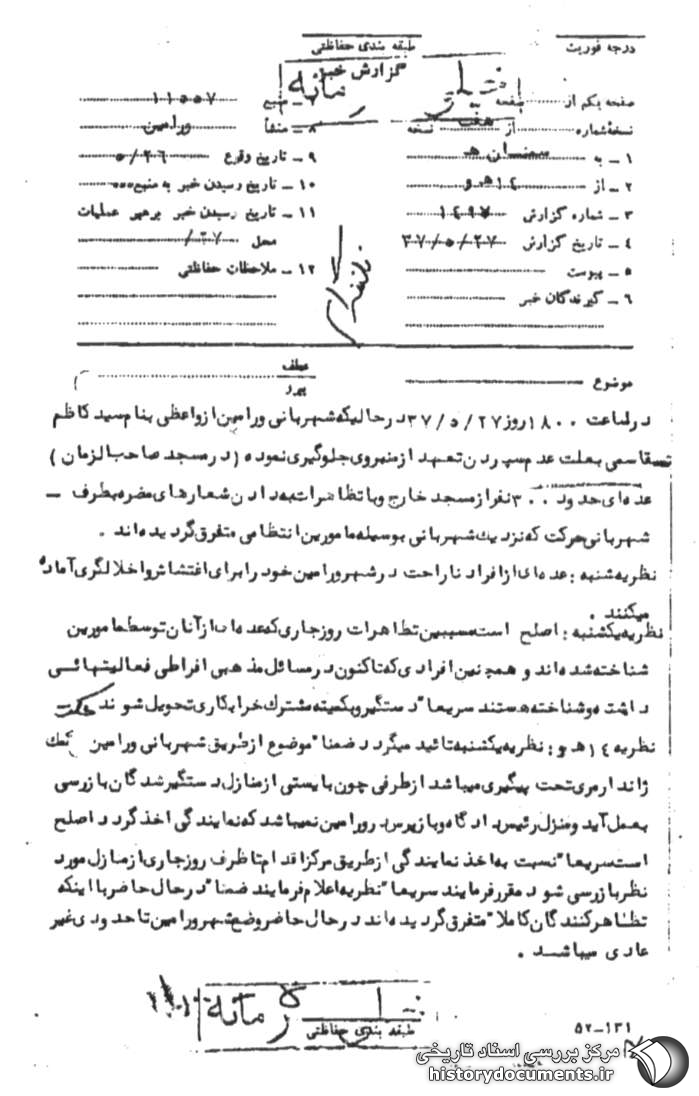 درجه فوریت
طبقه بندی حفاظتی
گزارش خبر
خیلی محرمانه
صفحه یکم از صفحه
نسخه شماره از هفت نسخه
۱ – به سمنان ه‍
۲ – از ۱۴ه‍ و
۳ – شماره گزارش ۱۴۹۷
۴ – تاریخ گزارش ۳۷/۵/۲۷
۵ – پیوست
۶ – گیرندگان خبر
۷ – منبع ۱۱۵۵۷
۸ – منشأ ورامین
۹ – تاریخ وقوع ۵/۲۶
۱۰ – تاریخ رسیدن خبر به منبع
۱۱ – تاریخ رسیدن خبر برهبر عملیات
محل ۲۷/
۱۲ – ملاحظات حفاظتی
موضوع
عطف
پیرو
در ساعت ۱۸۰۰ روز ۳۷/۵/۲۷ در حالیکه شهربانی ورامین از واعظی بنام سید کاظم
قاسمی بعلت عدم سپردن تعهد از منبروی جلوگیری نموده (در مسجد صاحب الزمان)
عده‌ای حدود ۳۰۰ نفر از مسجد خارج و با تظاهرات به دادن شعارهای مضره بطرف –
شهربانی حرکت که نزدیک شهربانی بوسیله مامورین انتظامی متفرق گردیده‌اند .
نظریه شنبه : عده‌ای از افراد ناراحت در شهر ورامین خود را برای اغتشاش و اخلالگری آماده
میکنند .
نظریه یکشنبه : اصلح است مسببین تظاهرات روز جاری که عده‌ای از آنان توسط مامورین
شناخته شده‌اند و همچنین افرادی که تاکنون در مسائل مذهبی افراطی فعالیتهائی
داشته و شناخته هستند سریعا" دستگیر و بکمیته مشترک خرابکاری تحویل شوند
نظریه ۱۴ه‍ و : نظریه یکشنبه تائید میگردد ضمنا" موضوع از طریق شهربانی ورامین کمک
ژاندارمری تحت پیگیری میباشد از طرفی چون بایستی از منازل دستگیرشدگان بازرسی
بعمل آید و منزل رئیس دادگاه و بازپرس در ورامین نمیباشد که نمایندگی اخذ گردد اصلح
است سریعا" نسبت به اخذ نمایندگی از طریق مرکز اقدام تا ظرف روز جاری از منازل مورد
نظر بازرسی شود مقرر فرمایند سریعا" نظریه اعلام فرمایند ضمنا" در حال حاضر با اینکه
تظاهرکنندگان کاملا" متفرق گردیده‌اند در حال حاضر وضع شهر ورامین تا حدودی غیر
عادی میباشد .
طبقه بندی حفاظتی
۵۲–۱۳۱
مرکز بررسی اسناد تاریخی
historydocuments.ir